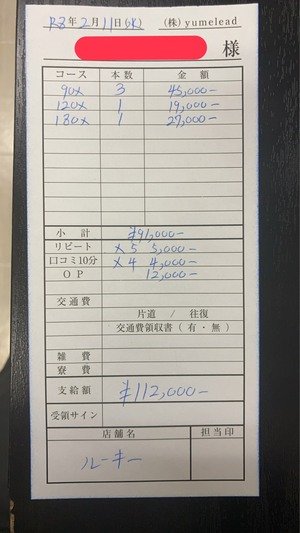 R8年2月11日(水) (株)yumelead
様
コース 本数 金額
90分 3 45,000-
120分 1 19,000-
180分 1 27,000-
小計 ¥91,000-
リピート ×5 5,000-
口コミ10分 ×4 4,000-
OP 12,000-
交通費
片道 / 往復
交通費領収書(有・無)
雑費
寮費
支給額 ¥112,000-
受領サイン
店舗名 担当印
ルーキー